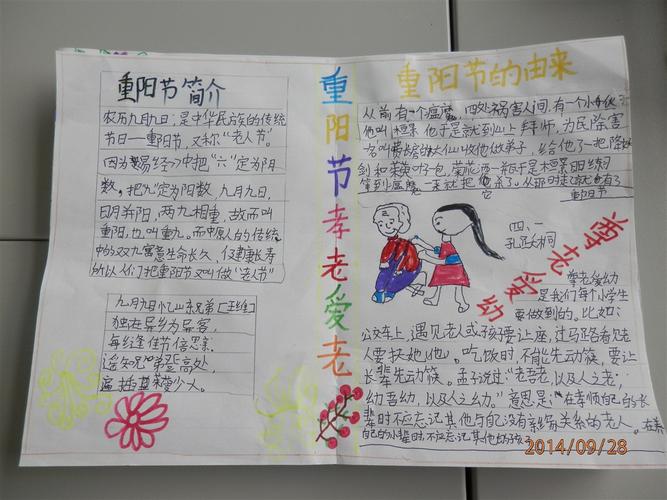 重阳节简介
农历九月九日,是中华民族的传统
节日——重阳节,又称“老人节”。
因为《易经》中把“六”定为阴
数,把“九”定为阳数,九月九日,
日月并阳,两九相重,故而叫
重阳,也叫重九。而中原人的传统
中的双九寓意生命长久、健康长寿
所以人们把重阳节又叫做“老人节”
九月九日忆山东兄弟 [王维]
独在异乡为异客,
每逢佳节倍思亲。
遥知兄弟登高处,
遍插茱萸少一人。
重阳节孝老爱老
重阳节的由来
从前有一个瘟魔,四处祸害人间,有一个小伙子
他叫桓景 他于是就到山上拜师,为民除害
名叫费长房的大仙收他做弟子,给他了一把降妖
剑和茱萸叶子一包,菊花酒一瓶于是桓景回家
等到瘟魔一来就把它杀了。从那时起就有了
重阳节
尊老爱幼
四、一
孔跃桐
尊老爱幼
是我们每个小学生
要做到的。比如:
公交车上,遇见老人或孩子要让座,过马路看见老
人要扶她(他)。吃饭时,不能先动筷,要让
长辈先动筷。孟子说过:“老吾老,以及人之老;
幼吾幼,以及人之幼。”意思是:“在孝顺自己的长
辈时不应忘记其他与自己没有亲缘关系的老人。在养
自己的小辈时不应忘记其他的孩子
2014/09/28